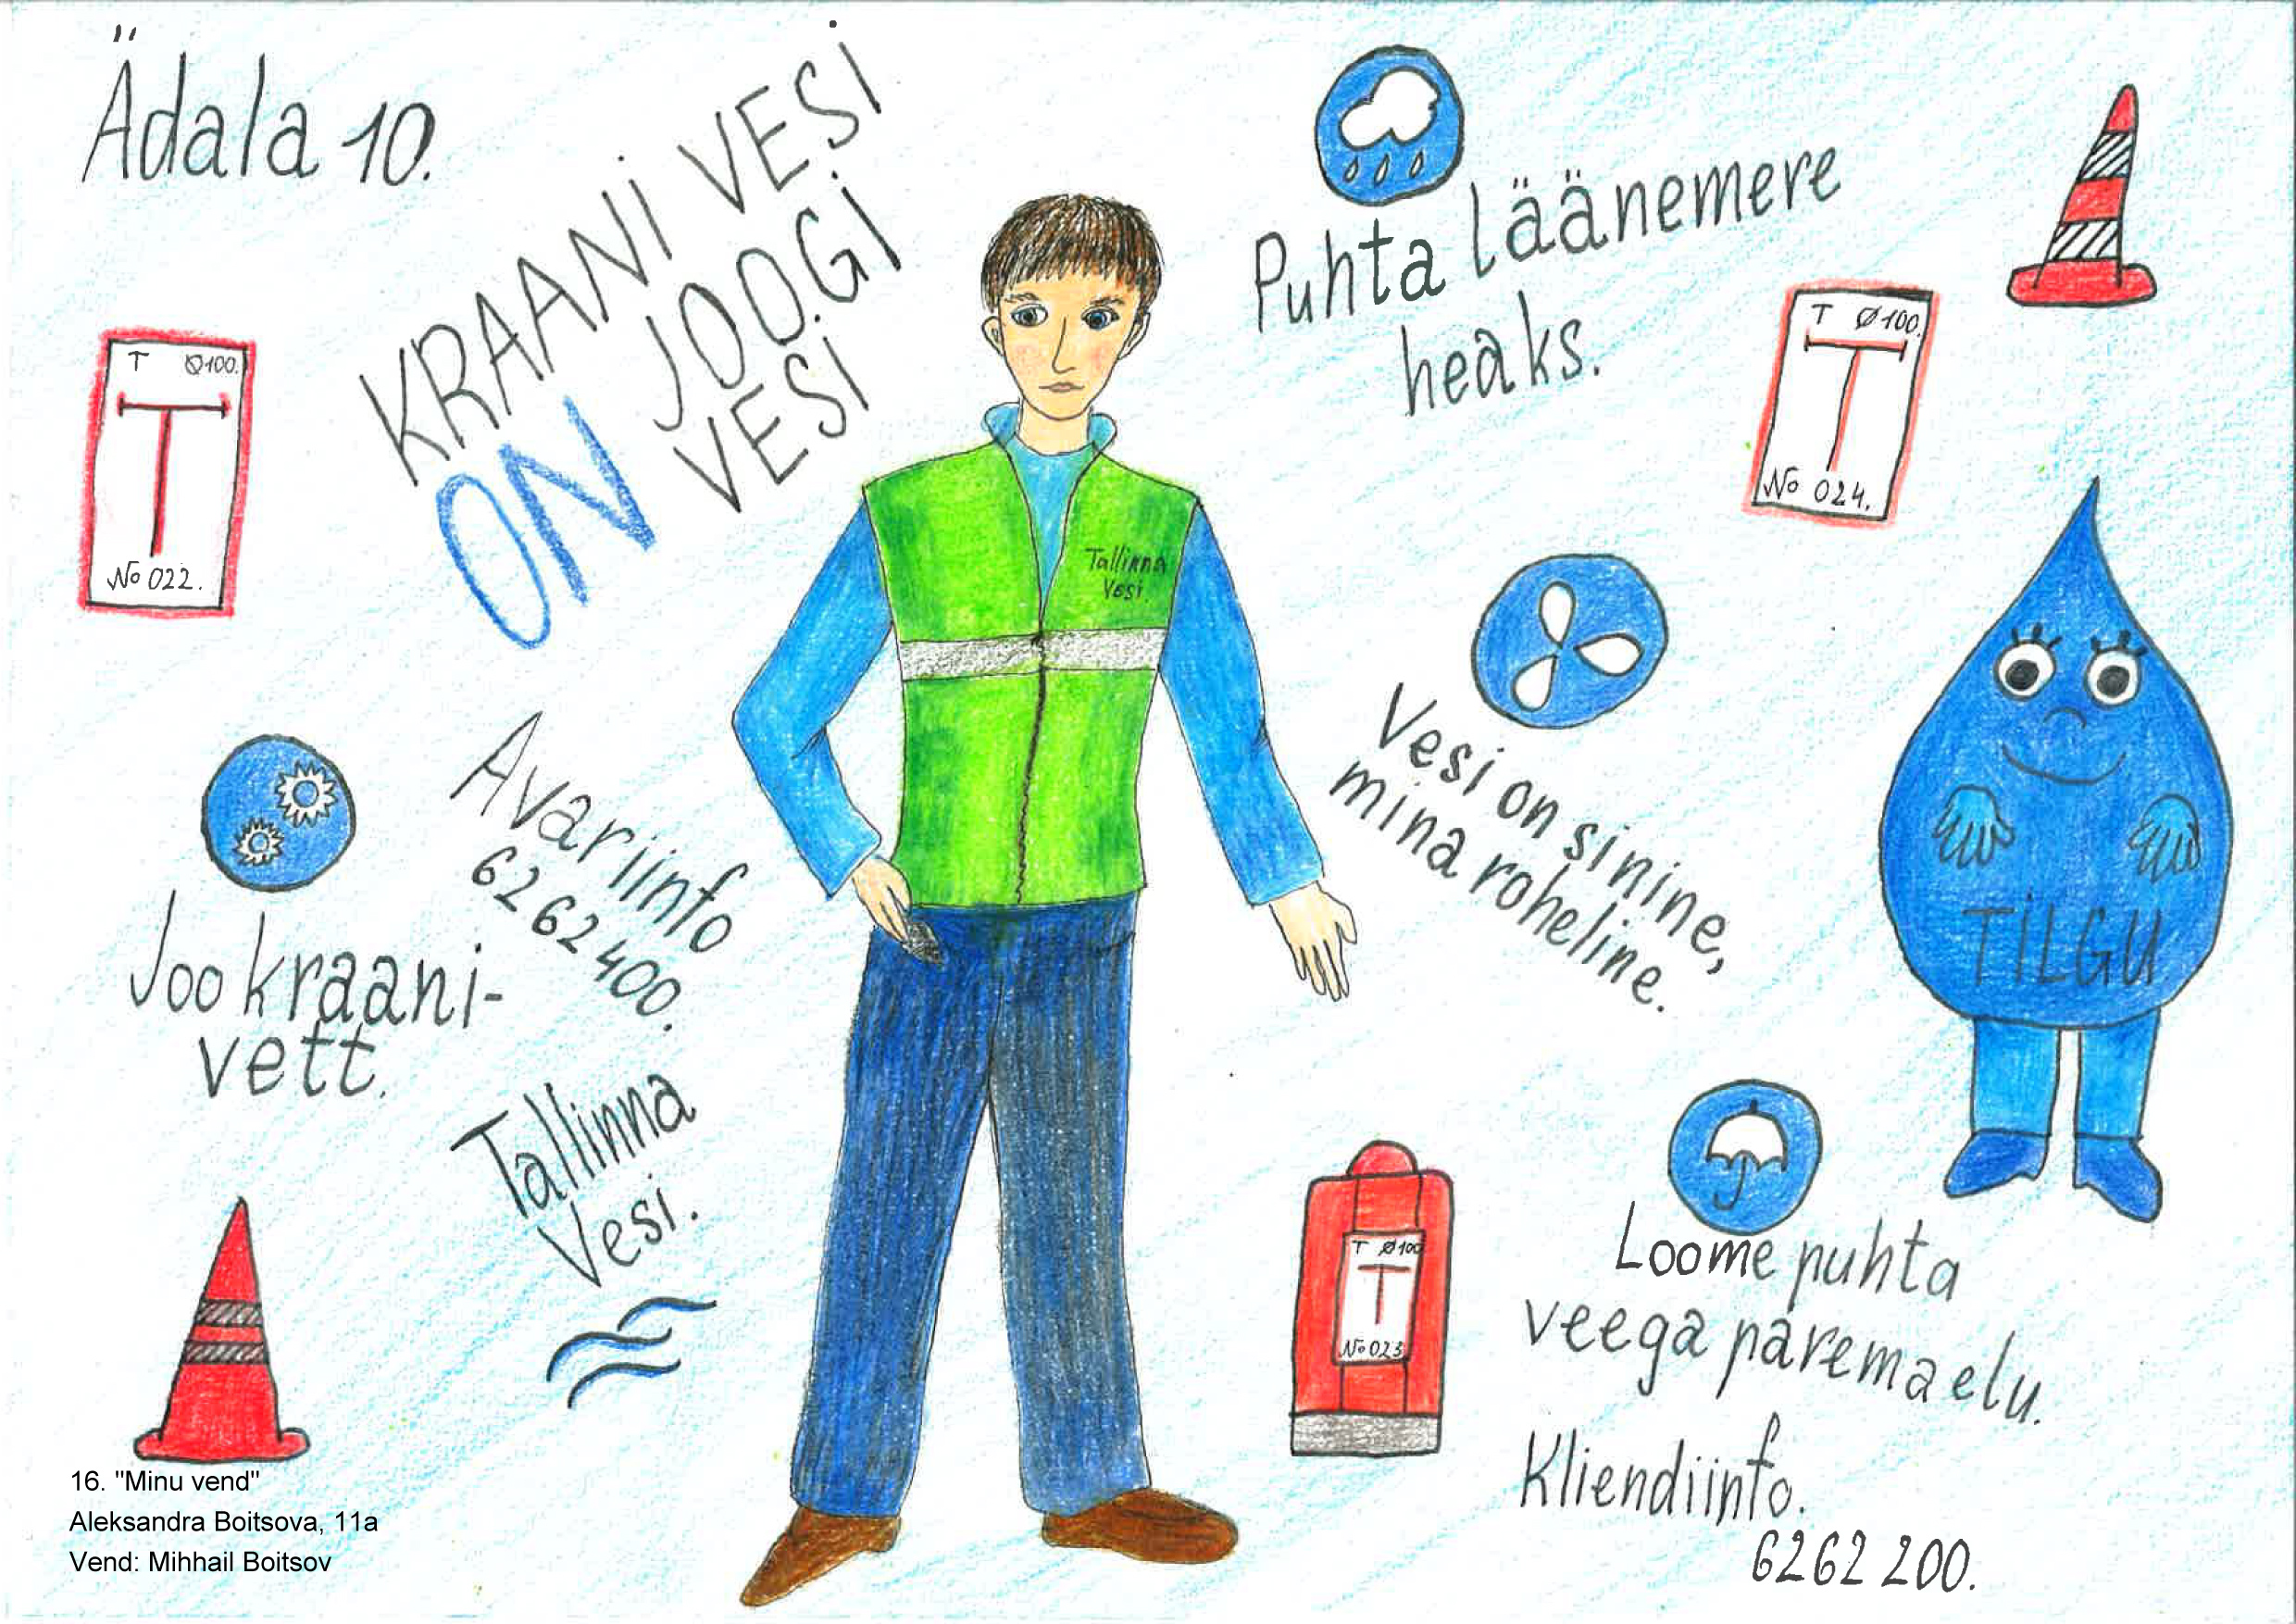 Ädala 10.
KRAANI VESI
ON JOOGI
VESI
Puhta läänemere
heaks.
T Ø100.
T
No 022.
T Ø100.
T
No 024.
Tallinna
Vesi
Avariinfo
6262400.
Joo kraani-
vett.
Vesi on sinine,
mina roheline.
TiLGU
Tallinna
Vesi.
T Ø100
T
No 023
Loome puhta
veega parema elu.
Kliendiinfo.
6262 200.
16. "Minu vend"
Aleksandra Boitsova, 11a
Vend: Mihhail Boitsov